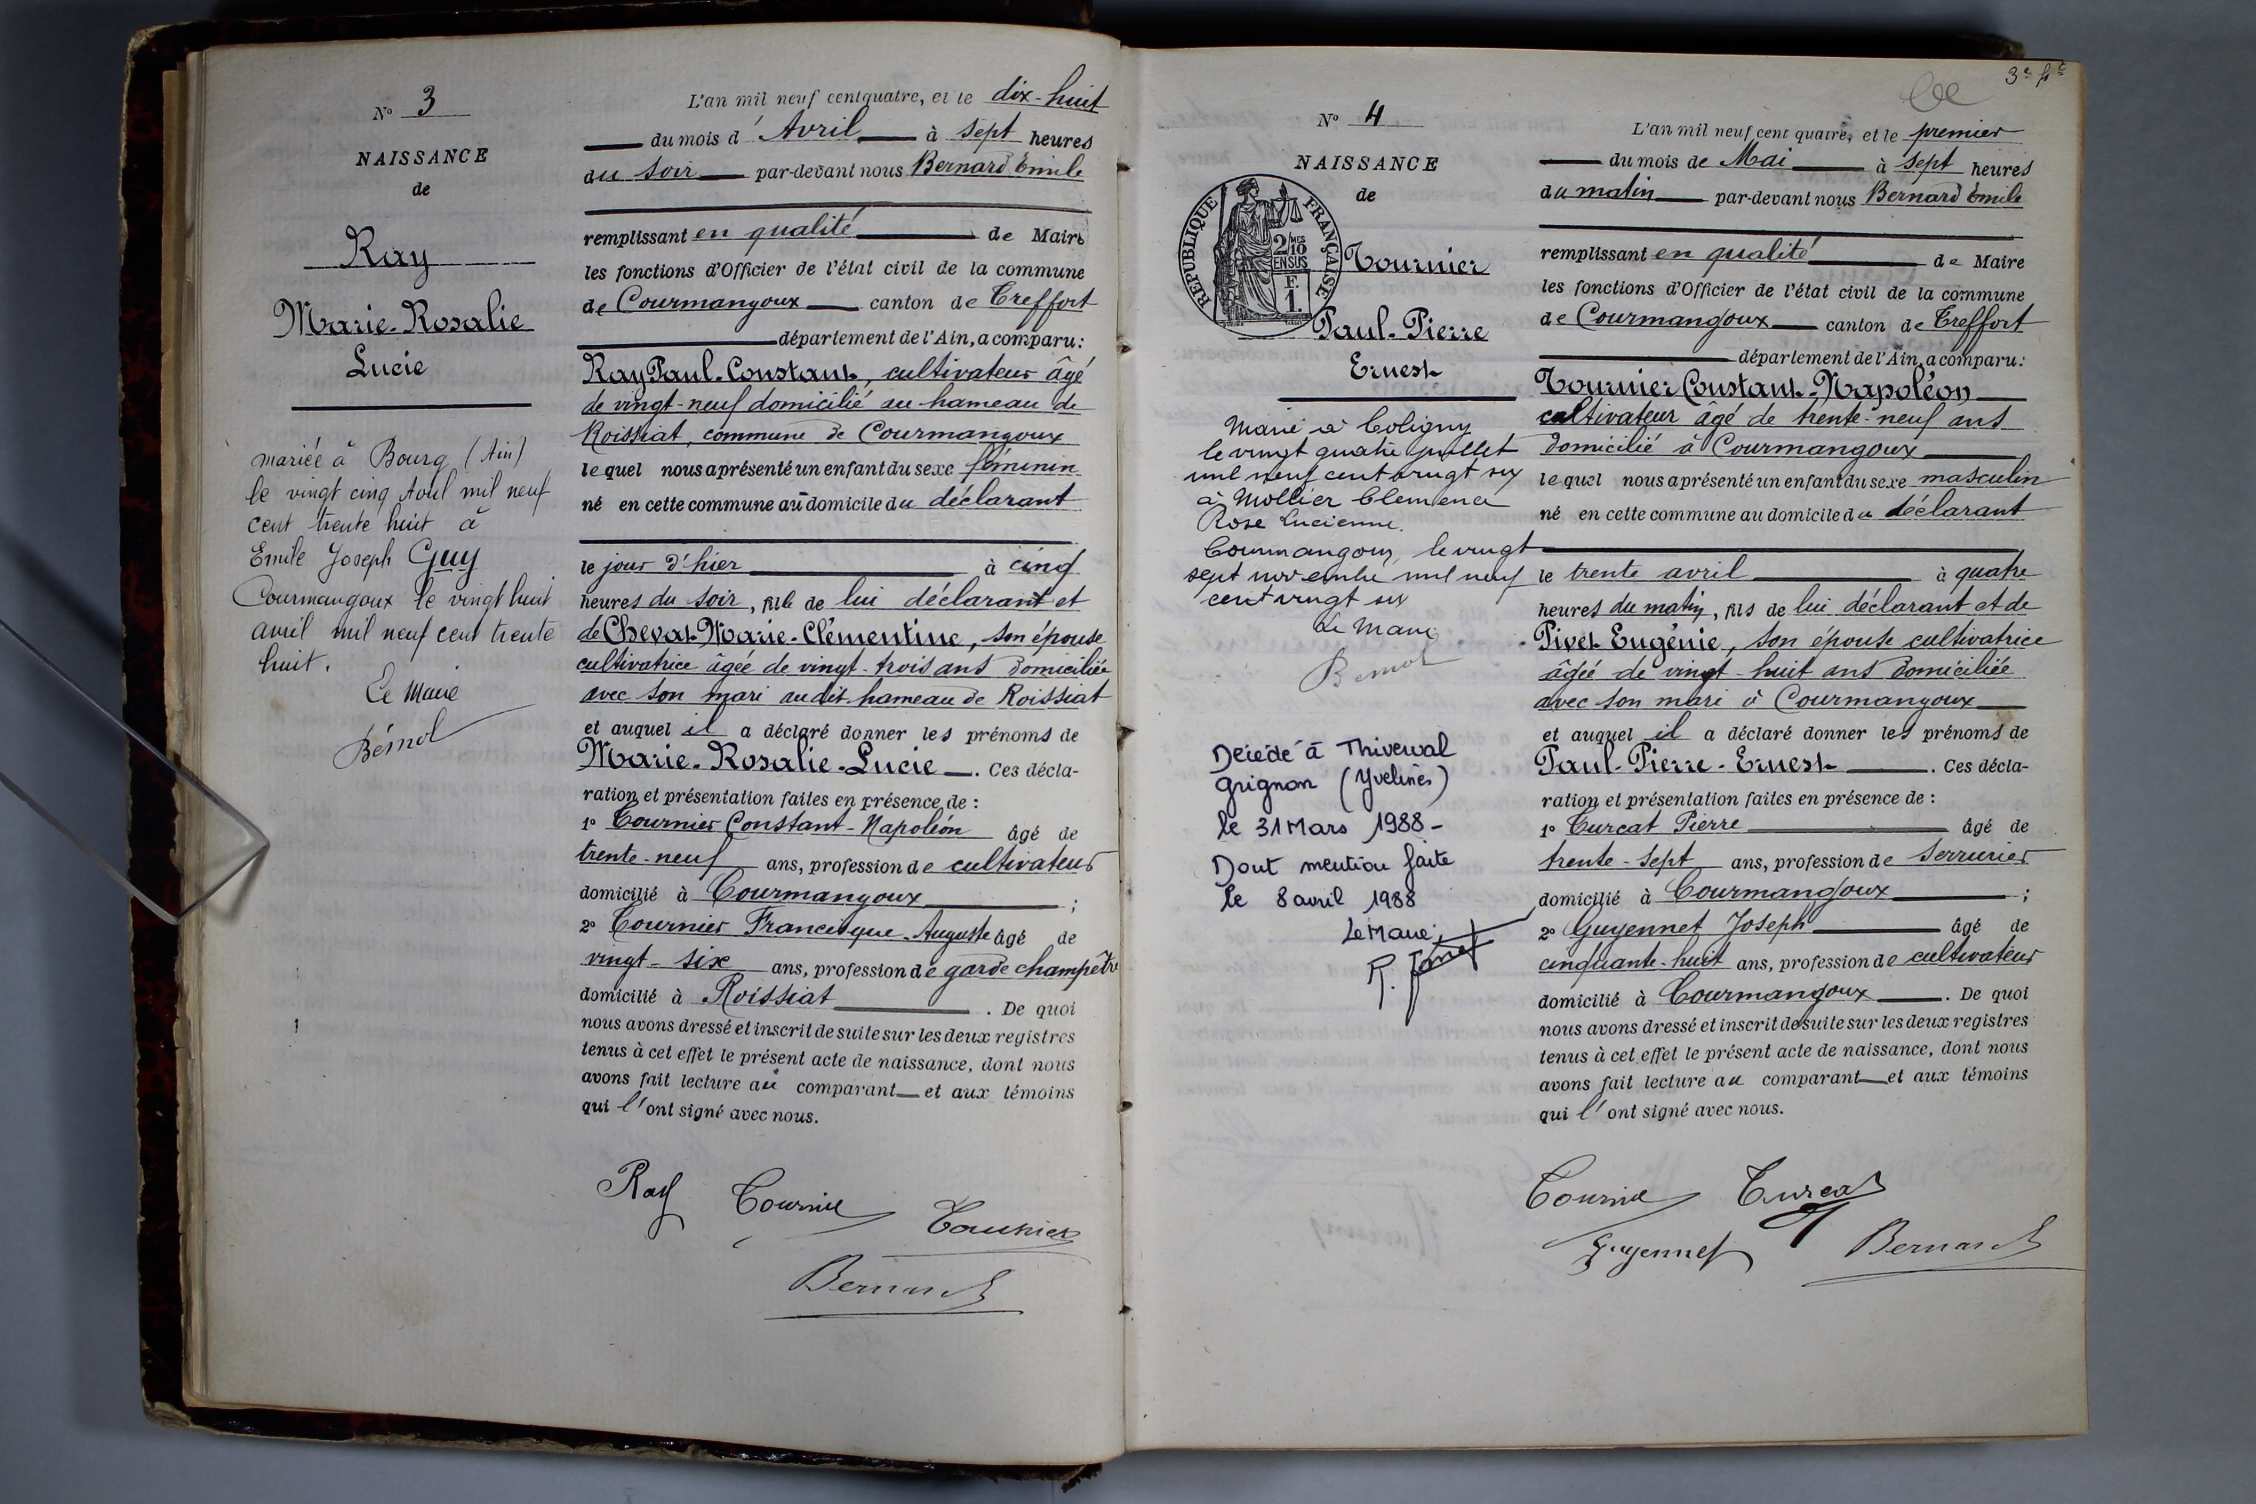 N° 3
NAISSANCE
de
Ray
Marie-Rosalie
Lucie
mariée à Bourg (Ain)
le vingt cinq Avril mil neuf
cent trente huit à
Emile Joseph Guy
Courmangoux le vingt huit
avril mil neuf cent trente
huit.
Le Maire
L'an mil neuf cent quatre, et le dix-huit
du mois d'Avril à sept heures
du soir par-devant nous Bernard Emile
remplissant en qualité de Maire
les fonctions d'Officier de l'état civil de la commune
de Courmangoux canton de Treffort
département de l'Ain, a comparu:
Ray Paul-Constant, cultivateur âgé
de vingt-neuf domicilié au hameau de
Roissiat, commune de Courmangoux
lequel nous a présenté un enfant du sexe féminin
né en cette commune au domicile du déclarant
le jour d'hier à cinq
heures du soir, fille de lui déclarant et
de Chevat Marie-Clémentine, son épouse
cultivatrice âgée de vingt-trois ans domiciliée
avec son mari audit hameau de Roissiat
et auquel il a déclaré donner les prénoms de
Marie-Rosalie-Lucie. Ces décla-
ration et présentation faites en présence de :
1° Tournier Constant-Napoléon âgé de
trente-neuf ans, profession de cultivateur
domicilié à Courmangoux ;
2° Tournier Francisque-Auguste âgé de
vingt-six ans, profession de garde champêtre
domicilié à Roissiat. De quoi
nous avons dressé et inscrit de suite sur les deux registres
tenus à cet effet le présent acte de naissance, dont nous
avons fait lecture au comparant et aux témoins
qui l'ont signé avec nous.
Ray Tournier Tournier
Bernard
3e fe
N° 4
NAISSANCE
de
REPUBLIQUE FRANÇAISE
2/10 MES
EN SUS
F.
1.
Tournier
Paul-Pierre
Ernest
Marié à Coligny
le vingt quatre juillet
mil neuf cent vingt six
à Mollier Clémence
Rose Lucienne.
Courmangoux, le vingt
sept novembre mil neuf
cent vingt six
Le Maire
Décédé à Thiverval
Grignon (Yvelines)
le 31 Mars 1988-
Dont mention faite
le 8 avril 1988
Le Maire :
L'an mil neuf cent quatre, et le premier
du mois de Mai à sept heures
du matin par-devant nous Bernard Emile
remplissant en qualité de Maire
les fonctions d'Officier de l'état civil de la commune
de Courmangoux canton de Treffort
département de l'Ain, a comparu:
Tournier Constant-Napoléon
cultivateur âgé de trente-neuf ans
domicilié à Courmangoux
lequel nous a présenté un enfant du sexe masculin
né en cette commune au domicile du déclarant
le trente avril à quatre
heures du matin, fils de lui déclarant et de
Pivet Eugénie, son épouse cultivatrice
âgée de vingt-huit ans domiciliée
avec son mari à Courmangoux
et auquel il a déclaré donner les prénoms de
Paul-Pierre-Ernest. Ces décla-
ration et présentation faites en présence de :
1° Turcat Pierre âgé de
trente-sept ans, profession de serrurier
domicilié à Courmangoux ;
2° Guyennet Joseph âgé de
cinquante-huit ans, profession de cultivateur
domicilié à Courmangoux. De quoi
nous avons dressé et inscrit de suite sur les deux registres
tenus à cet effet le présent acte de naissance, dont nous
avons fait lecture au comparant et aux témoins
qui l'ont signé avec nous.
Tournier Turcat
Guyennet Bernard